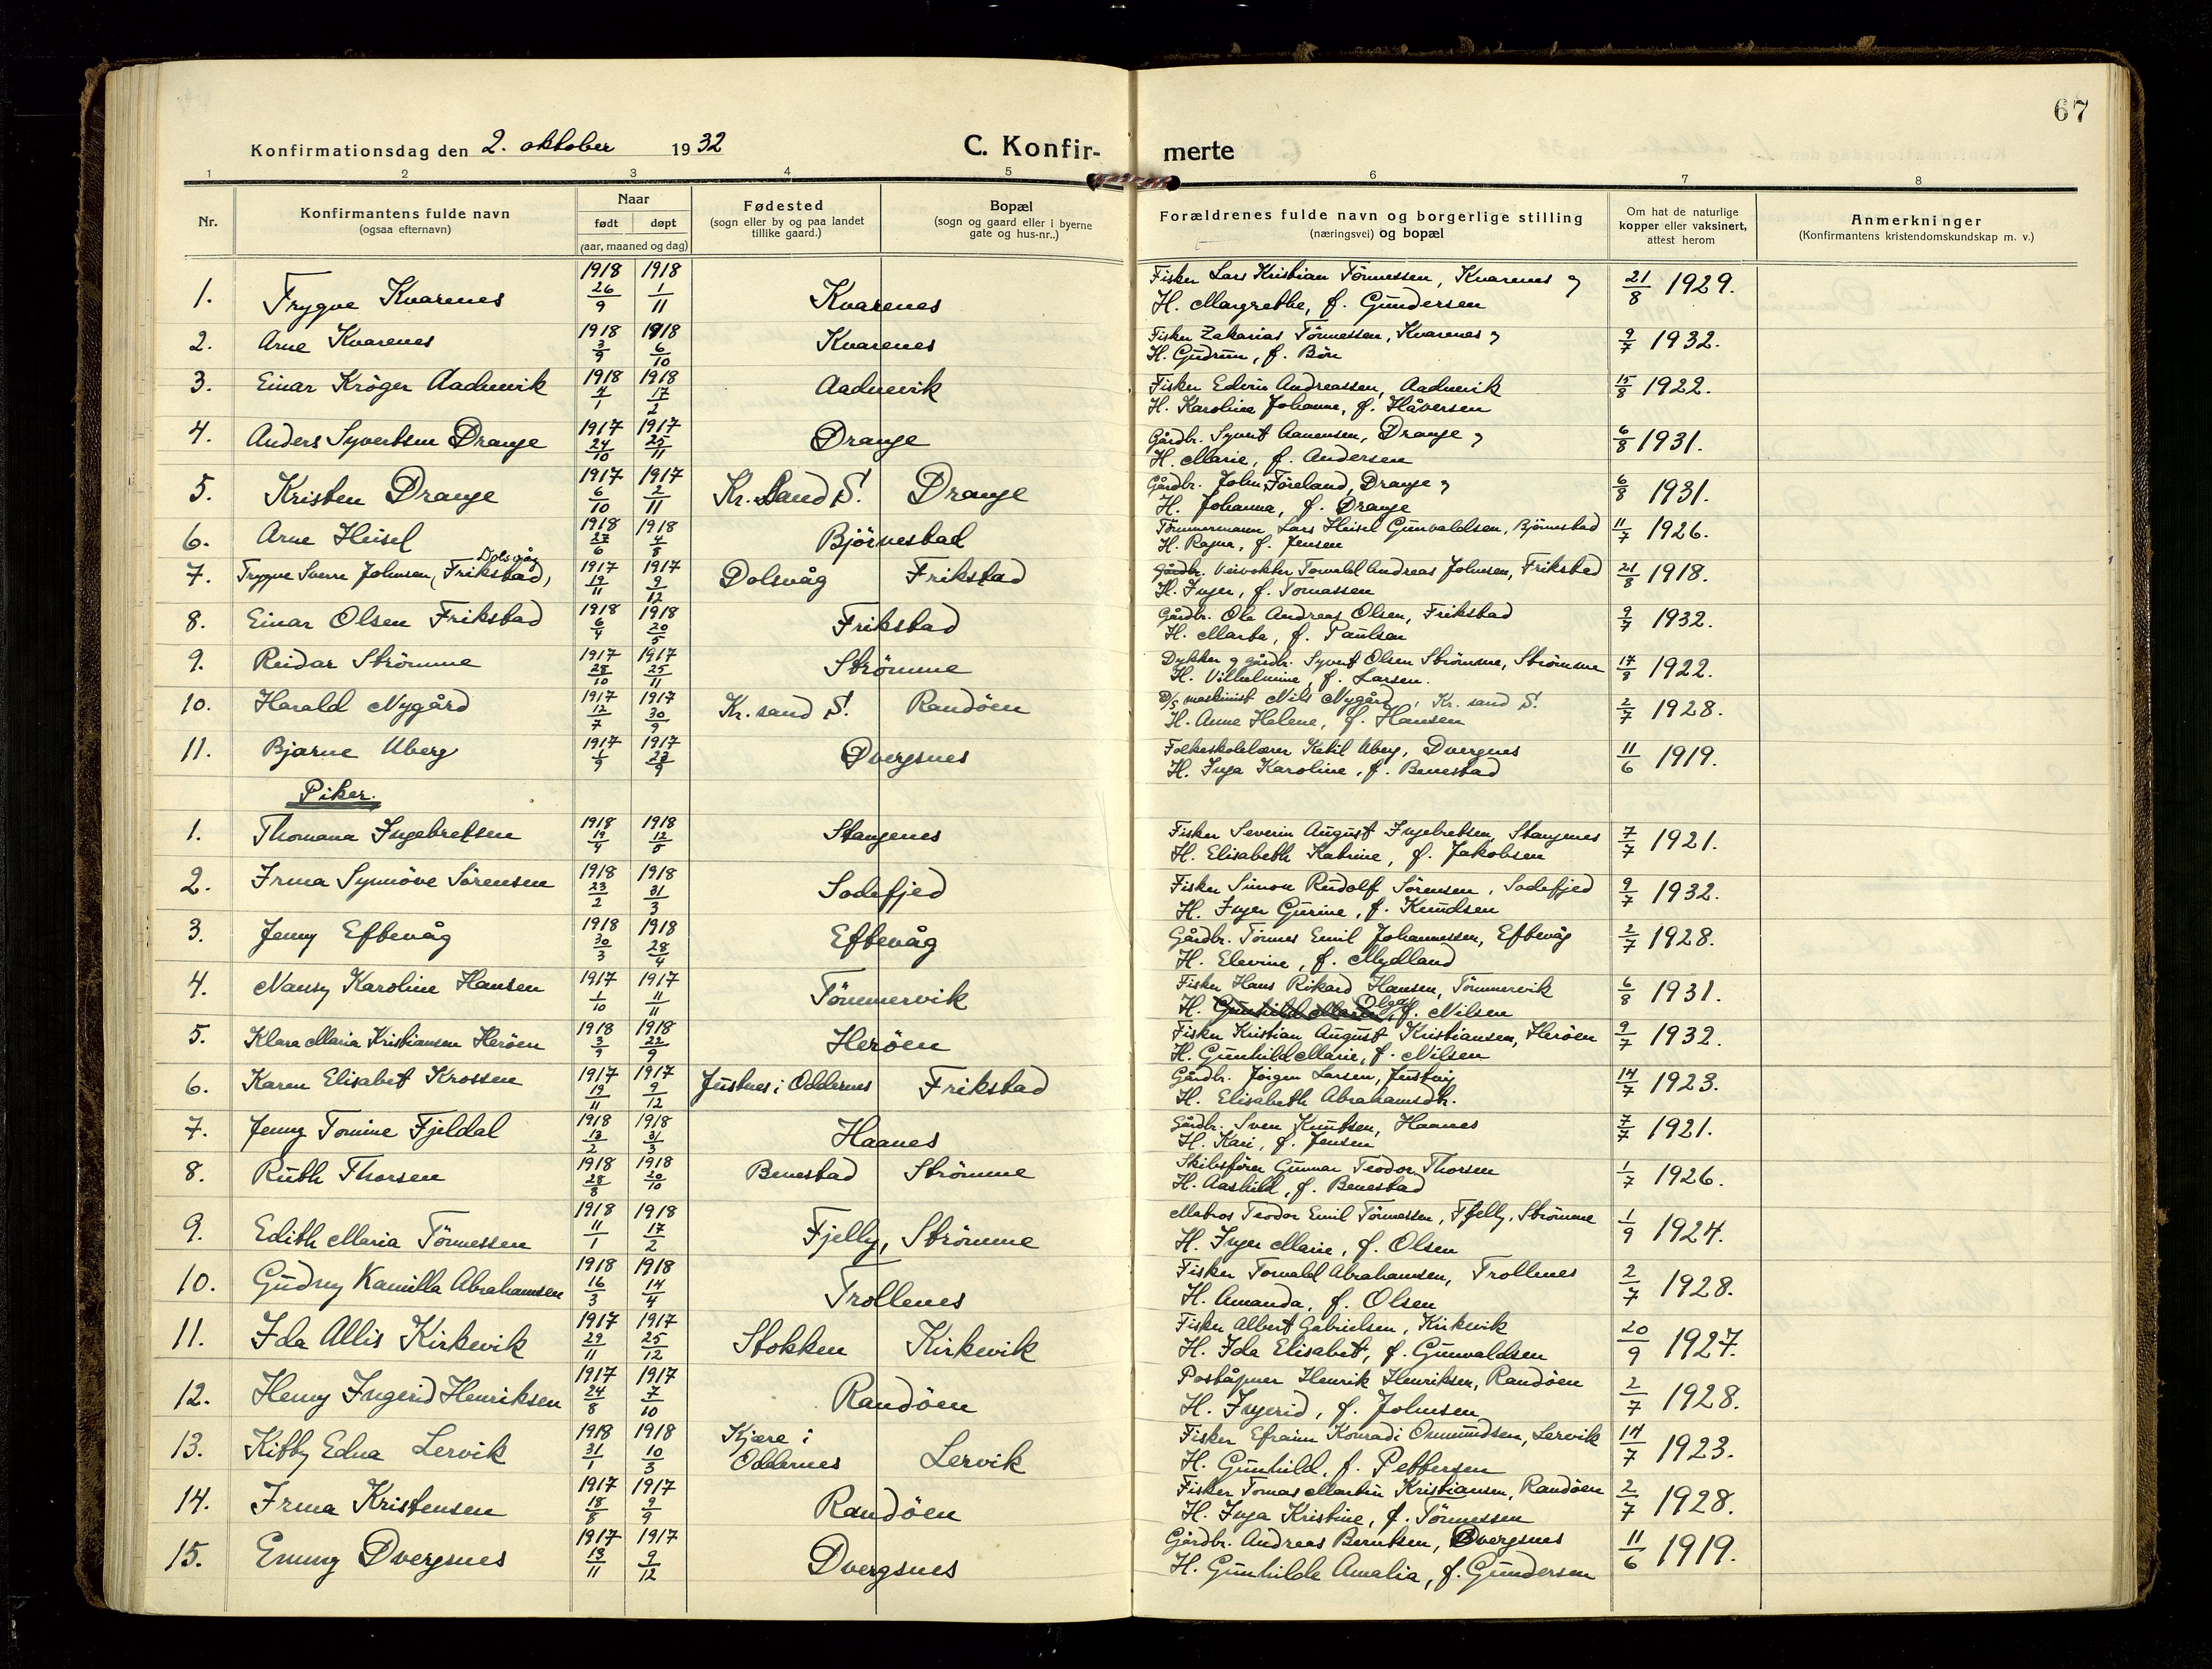 67
Konfirmationsdag den 2. oktober 1932 C. Konfir- merte
1 2 3 4 5 6 7 8
Nr. Konfirmantens fulde navn (ogsaa efternavn) Naar født døpt (aar, maaned og dag) Fødested (sogn eller by og paa landet tillike gaard.) Bopæl (sogn og gaard eller i byerne gate og hus-nr..) Forældrenes fulde navn og borgerlige stilling (næringsvei) og bopæl Om hat de naturlige kopper eller vaksinert, attest herom Anmerkninger (Konfirmantens kristendomskundskap m. v.)
1. Trygve Kvarenes 1918 26/9 1918 1/11 Kvarenes Fisker Lars Kristian Tönnessen, Kvarenes og H. Margrethe, f. Gundersen 21/8 1929.
2. Arne Kvarenes 1918 3/9 1918 6/10 Kvarenes Fisker Zakarias Tönnessen, Kvarenes og H. Gudrun, f. Bön 9/7 1932.
3. Einar Kröger Aadnevik 1918 4/1 1918 17/2 Aadnevik Fisker Edvin Andreassen, Aadnevik H. Karoline Johanne, f. Håversen 15/8 1922.
4. Anders Syvertsen Drange 1917 24/10 1917 25/11 Drange Gårdbr. Syvert Aanensen, Drange og H. Marie, f. Andersen 6/8 1931.
5. Kristen Drange 1917 6/10 1917 2/11 Kr. Sand S. Drange Gårdbr. John Föreland, Drange og H. Johanna, f. Drange 6/8 1931.
6. Arne Heisel 1918 27/6 1918 4/8 Björnestad Tömmermann Lars Heisel Gunvaldsen, Björnestad H. Ragna, f. Jensen 11/7 1926.
7. Trygve Sverre Johnsen (Frikstad), Dolsvåg 1917 19/11 1917 9/12 Dolsvåg Frikstad Gårdbr. Veivokter Torvald Andreas Johnsen, Frikstad H. Inger, f. Tomassen 21/8 1918.
8. Einar Olsen Frikstad 1918 6/4 1918 20/5 Frikstad Gårdbr. Ole Andreas Olsen, Frikstad H. Marta, f. Paulsen 9/7 1932.
9. Reidar Strömme 1917 28/10 1917 25/11 Strömme Dykker og gårdbr. Syvert Olsen Strömme, Strömme H. Vilhelmine, f. Larsen. 17/8 1922.
10. Harald Nygård 1917 12/7 1917 30/9 Kr. sand S. Randöen D/s maskinist Nils Nygård, Kr. sand S. H. Anne Helene, f. Hansen 2/7 1928.
11. Bjarne Uberg 1917 1/9 1917 23/9 Dvergsnes Folkeskolelærer Ketil Uberg, Dvergnes H. Inga Karoline, f. Benestad 11/6 1919.
Piker.
1. Thomana Ingebretsen 1918 19/4 1918 12/5 Stangenes Fisker Severin August Ingebretsen, Stangenes H. Elisabeth Katrine, f. Jakobsen 7/7 1921.
2. Irma Synnöve Sörensen 1918 23/2 1918 31/3 Sodefjed Fisker Simon Rudolf Sörensen, Sodefjed H. Inger Gurine, f. Knudsen 9/7 1932.
3. Jenny Eftevåg 1918 30/3 1918 28/4 Eftevåg Gårdbr. Tönnes Emil Johannessen, Eftevåg H. Elevine, f. Mydland 2/7 1928.
4. Nansy Karoline Hansen 1917 1/10 1917 11/11 Tömmervik Fisker Hans Rikard Hansen, Tömmervik H. Gunhild Marie Olga, f. Nilsen 6/8 1931.
5. Klara Maria Kristiansen Heröen 1918 3/9 1918 22/9 Heröen Fisker Kristian August Kristiansen, Heröen H. Gunhild Marie, f. Nilsen 9/7 1932.
6. Karen Elisabet Krossen 1917 19/11 1917 9/12 Justnes i Oddernes Frikstad Gårdbr. Jörgen Larsen, H. Elisabeth Abrahamsdtr. 14/7 1923.
7. Jenny Tomine Fjeldal 1918 13/2 1918 31/3 Haanes Gårdbr. Sven Knutsen, Haanes H. Kari, f. Jensen 7/7 1921.
8. Ruth Thorsen 1918 28/8 1918 20/10 Benestad Strömme Skibsförer Gunnar Teodor Thorsen H. Aashild, f. Benestad 1/7 1926.
9. Edith Maria Tönnessen 1918 11/1 1918 17/2 Fjelly, Strömme Matros Teodor Emil Tönnessen, Fjelly, Strömme H. Inger Marie, f. Olsen 1/9 1924.
10. Gudny Kamilla Abrahamsen 1918 16/3 1918 14/4 Trollenes Fisker Torvald Abrahamsen, Trollenes H. Amanda, f. Olsen 2/7 1928.
11. Ida Allis Kirkevik 1917 29/11 1917 25/12 Stokken Kirkevik Fisker Albert Gabrielsen, Kirkevik H. Ida Elisabet, f. Gunvaldsen 20/9 1927.
12. Henny Ingerid Henriksen 1917 24/8 1917 7/10 Randöen Poståpner Henrik Henriksen, Randöen H. Ingerid, f. Johnsen 2/7 1928.
13. Kitty Edna Lervik 1918 31/1 1918 10/3 Kjære i Oddernes Lervik Fisker Efraim Konradi Osmundsen, Lervik H. Gunhild, f. Pettersen 14/7 1923.
14. Irma Kristensen 1917 18/8 1917 9/9 Randöen Fisker Tomas Martin Kristiansen, Randöen H. Inga Kristine, f. Tönnessen 2/7 1928.
15. Emmy Dvergsnes 1917 13/11 1917 9/12 Dvergsnes Gårdbr. Andreas Berntsen, Dvergsnes H. Gunhilde Amalia, f. Gundersen 11/6 1919.